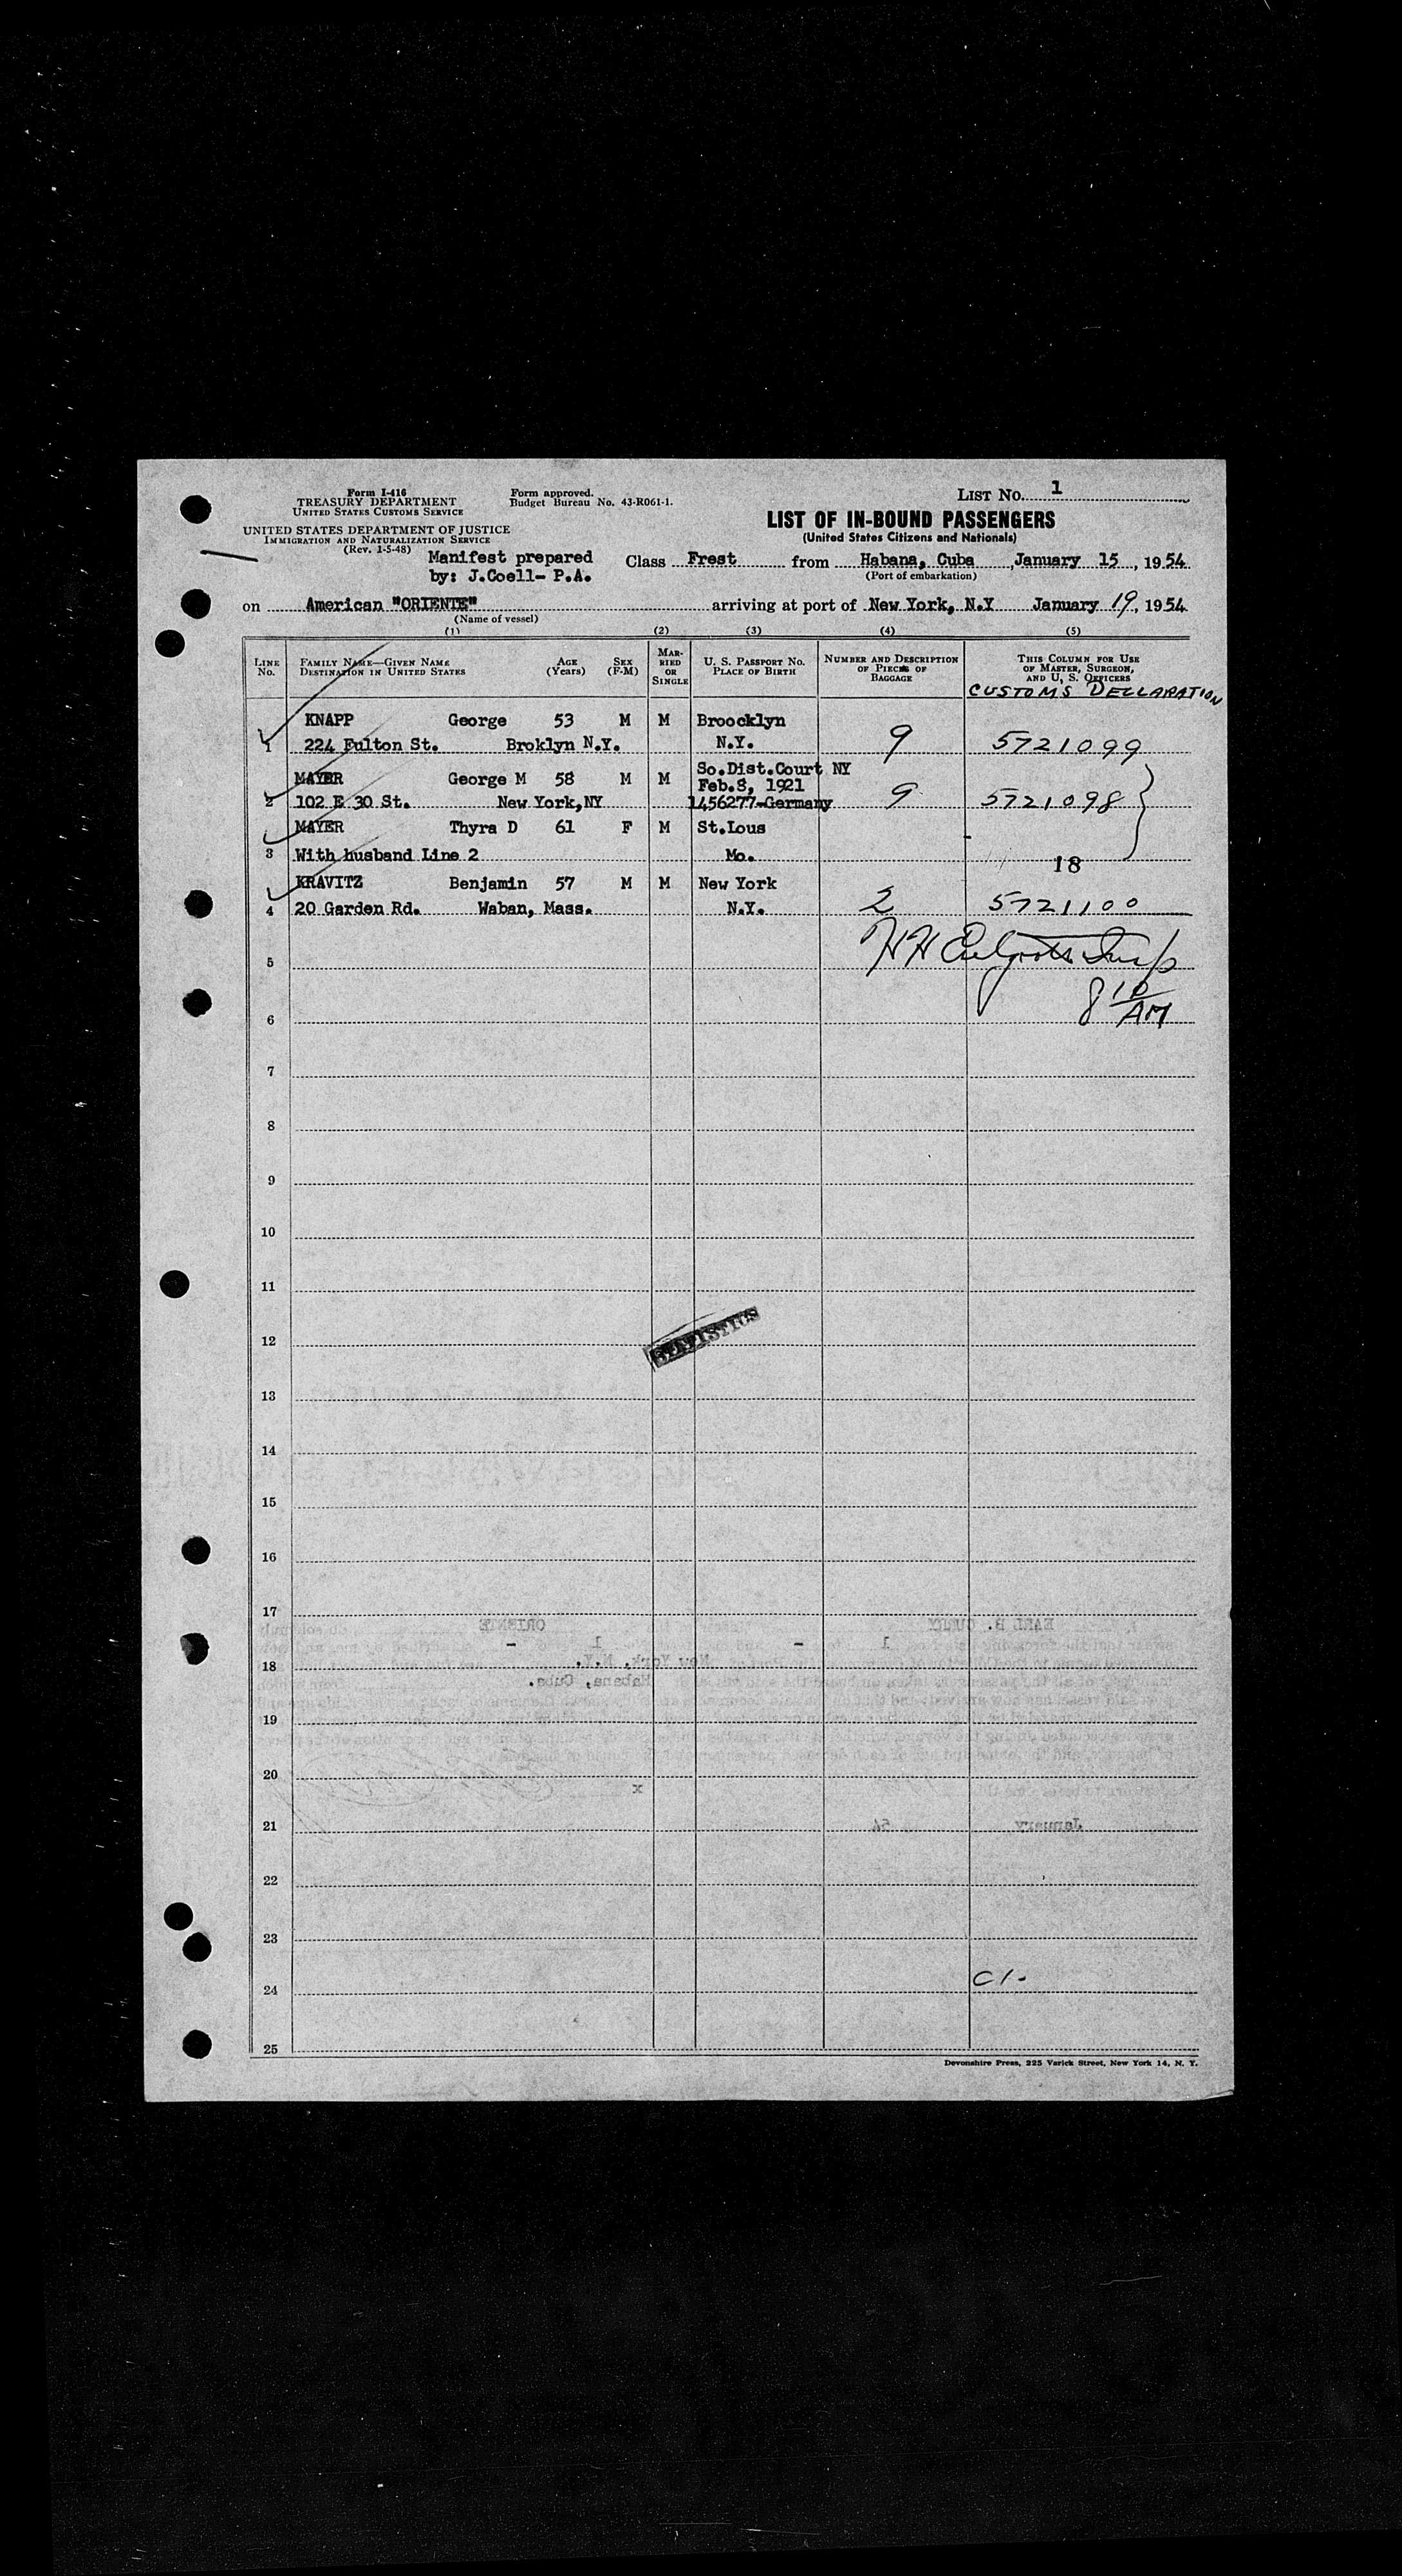 Form I-416
TREASURY DEPARTMENT
UNITED STATES CUSTOMS SERVICE
Form approved.
Budget Bureau No. 43-R061-1.
LIST NO. 1
UNITED STATES DEPARTMENT OF JUSTICE
IMMIGRATION AND NATURALIZATION SERVICE
(Rev. 1-5-48)
LIST OF IN-BOUND PASSENGERS
(United States Citizens and Nationals)
Manifest prepared
by: J.Coell- P.A.
Class Frest from Habana, Cuba, January 15, 1954
(Port of embarkation)
on American "ORIENTE" arriving at port of New York, N.Y January 19, 1954
(Name of vessel)
(1) (2) (3) (4) (5)
LINE NO. FAMILY NAME—GIVEN NAME DESTINATION IN UNITED STATES AGE (Years) SEX (F-M) MARRIED OR SINGLE U. S. PASSPORT NO. PLACE OF BIRTH NUMBER AND DESCRIPTION OF PIECES OF BAGGAGE THIS COLUMN FOR USE OF MASTER, SURGEON, AND U. S. OFFICERS
CUSTOMS DECLARATION
KNAPP George 53 M M Broocklyn
1 224 Fulton St. Broklyn N.Y. N.Y. 9 5721099
So.Dist.Court NY
MAYER George M 58 M M Feb.8, 1921
2 102 E 30 St. New York,NY 1456277-Germany 9 5721098
MAYER Thyra D 61 F M St.Lous
3 With husband Line 2 Mo. 18
KRAVITZ Benjamin 57 M M New York
4 20 Garden Rd. Waban, Mass. N.Y. 2 5721100
HH Insp
5
8 10 AM
6
7
8
9
10
11
12
STATISTICS
13
14
15
16
17
EARL B. ORIENTE
1 - 1 -
18
New York, N.Y.
Habana, Cuba.
19
20
x
21
January 54
22
23
C1-
24
25
Devonshire Press, 225 Varick Street, New York 14, N. Y.